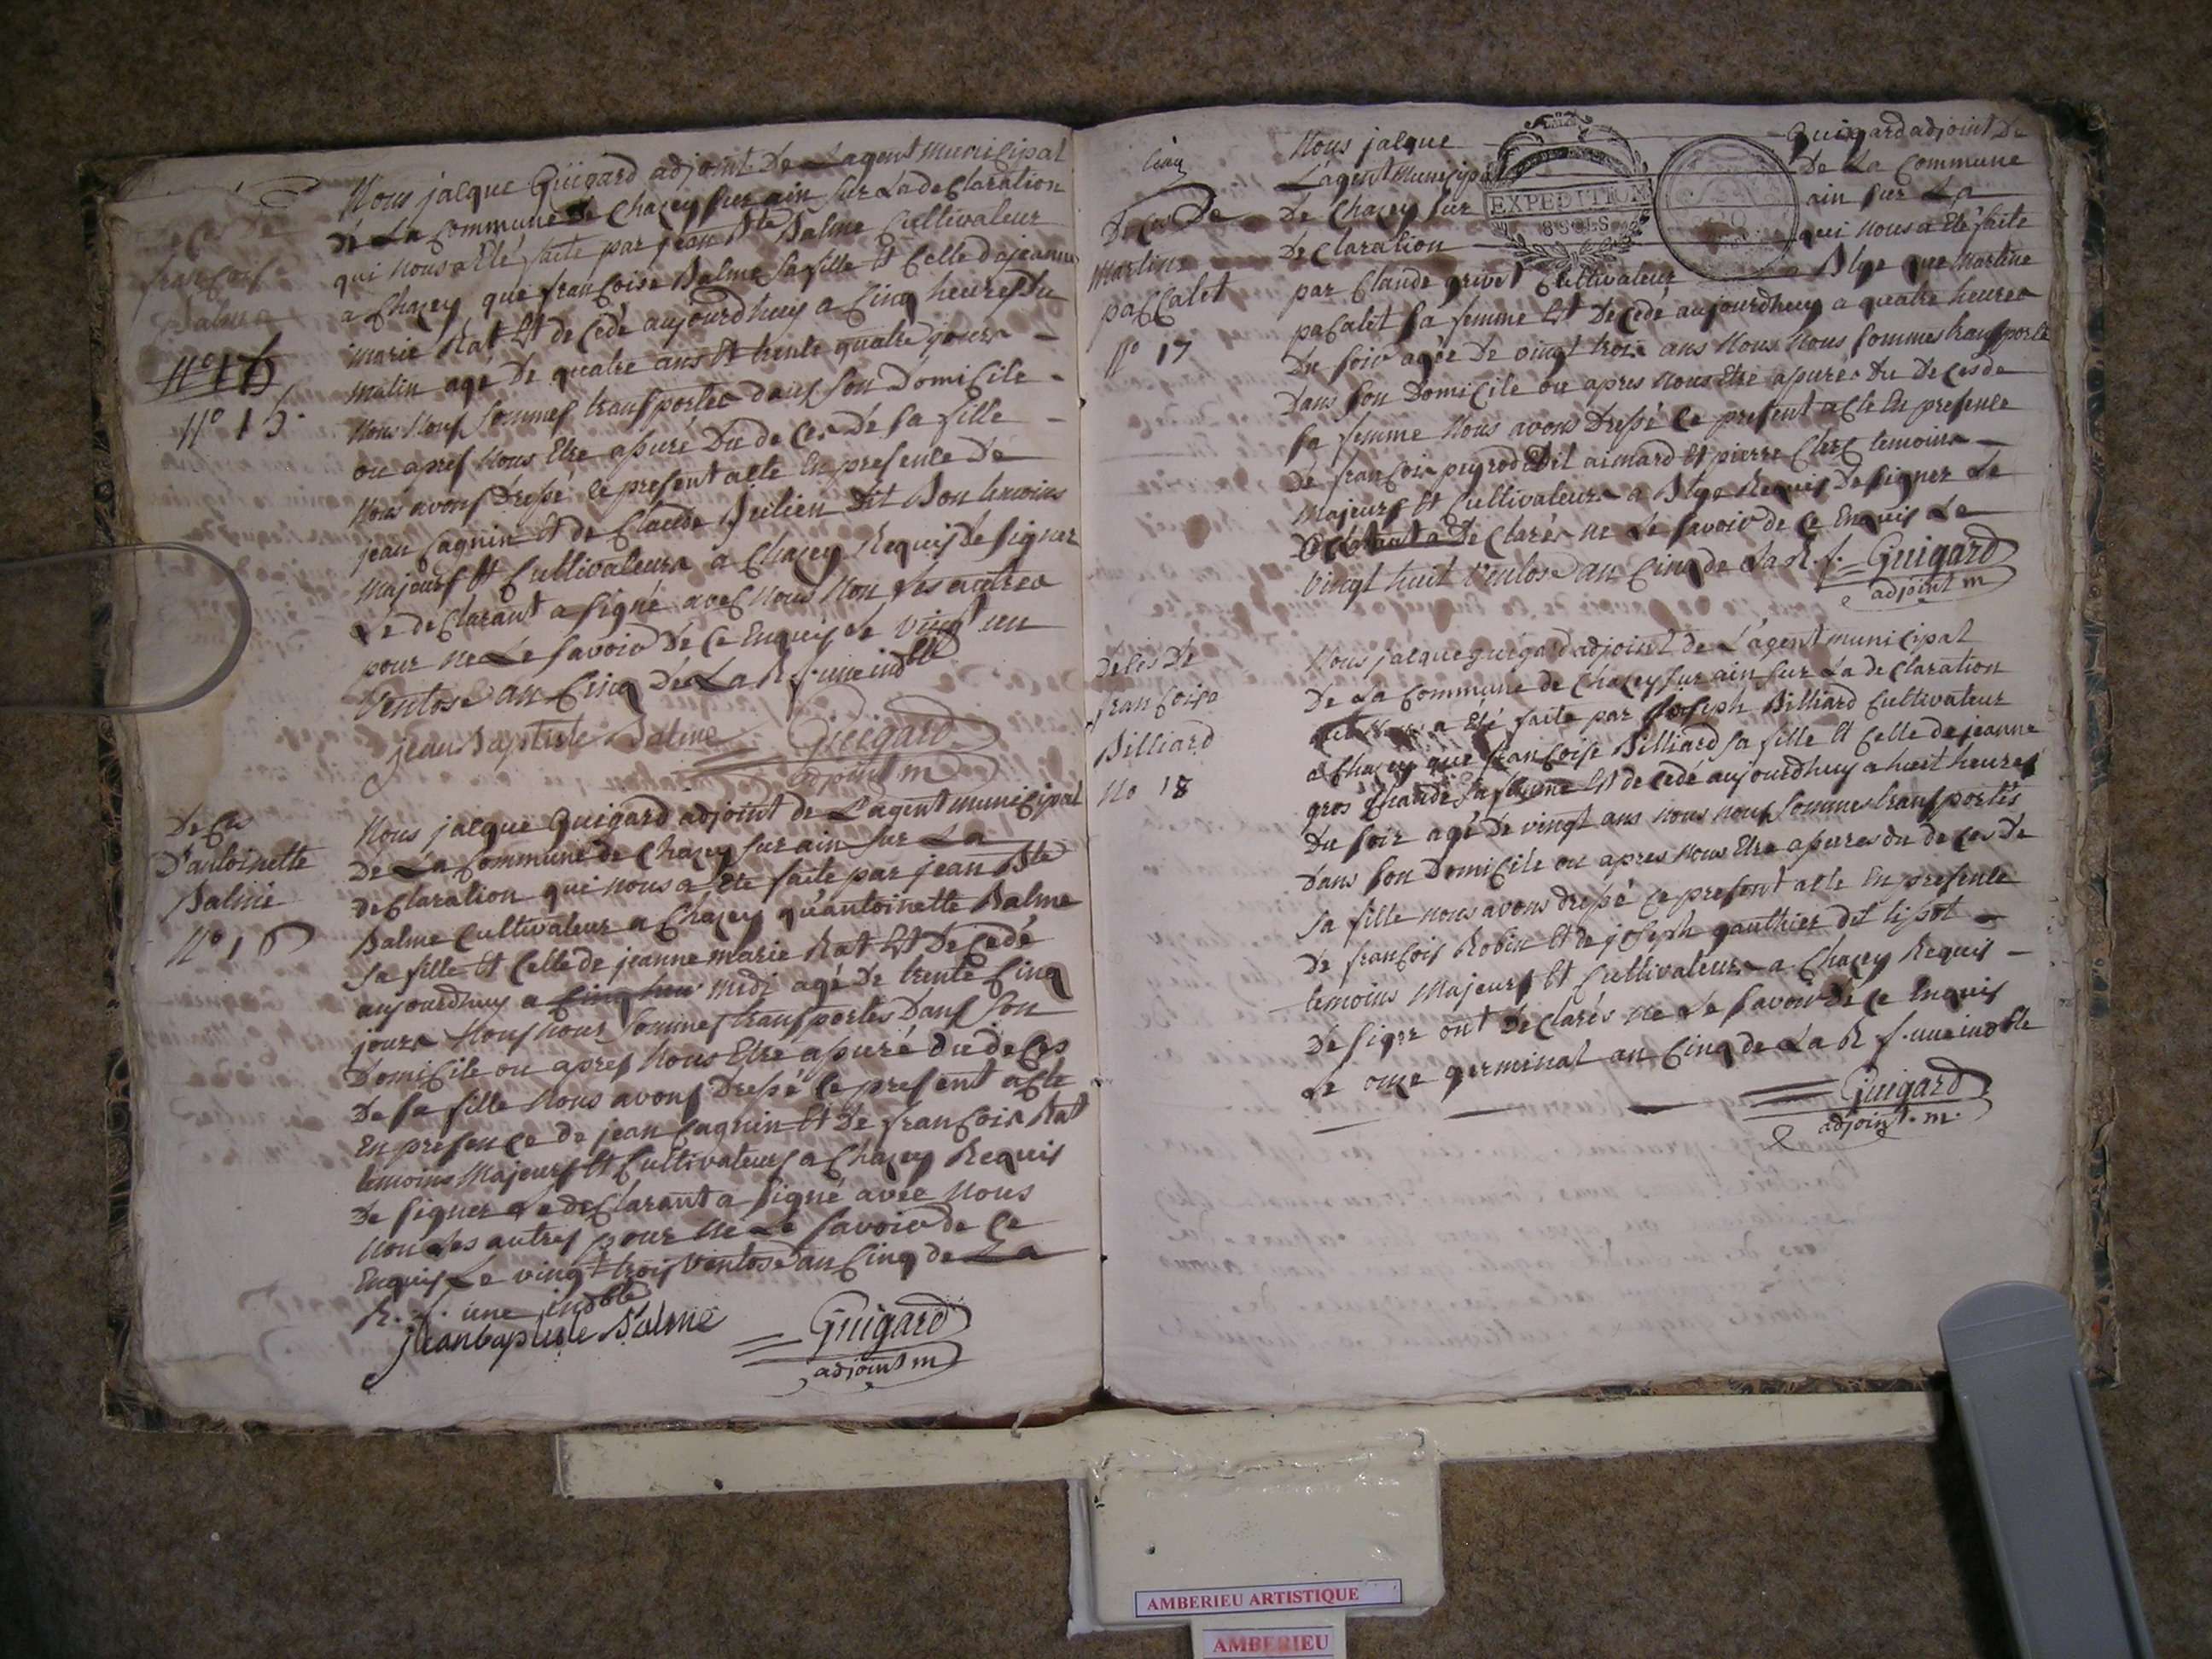 Deces De
francoise
Balme
N° 16
N° 15
Nous jacque Guigard adjoint De Lagent municipal
de La Commune de Chazey sur ain sur La de Claration
qui nous a Eté faite par jean Bte Balme Cultivateur
a Chazey que francoise Balme sa fille Et Celle de jeanne
marie Rat Est de Cedé aujourdhuy a Cinq heures Du
matin agé De quatre ans Et trente quatre jours
Nous Nous sommes transportés dans son Domicile
ou apres Nous Etre assuré Du de Ces De sa fille
Nous avons Dressé Ce present acte En presence De
jean Cagnin Et de Claude Julien Dit Bon temoins
Majeurs Et Cultivateurs a Chazey Requis De signer
Le de Clarant a signé avec Nous Non Les autres
pour ne Le savoir De Ce Enquis Le vingt un
Ventose an Cinq De La R. f. une indble
jean Baptiste Balme Guigard
adjoint m
De Ces
D'antoinette
Balme
N° 16
Nous jacque Guigard adjoint de L'agent municipal
De La Commune de Chazey sur ain sur La
deClaration qui nous a Eté faite par jean Bte
Balme Cultivateur a Chazey qu'antoinette Balme
sa fille Et Celle de jeanne marie Rat Est De Cedé
aujourdhuy a Cinq heur midi agé De trente Cinq
jours Nous nous sommes transportés Dans son
Domicile ou apres Nous Etre assuré du de Ces
De sa fille Nous avons Dressé Ce present acte
En presence de jean Cagnin Et De francois Rat
temoins Majeurs Et Cultivateurs a Chazey Requis
De signer Le de Clarant a signé avec Nous
Non Les autres pour Ne Le savoir de Ce
Enquis Le vingt trois Ventose an Cinq de La
R. f. une indble
jean baptiste Balme Guigard
adjoint m
Cinq
DeCes De
Martine
paCCalet
N° 17
EXPEDITION
8 SOLS
Nous jacque Guigard adjoint De
L'agent Municipal De La Commune
De Chazey sur ain sur La
De Claration qui nous a Eté faite
par Claude grivet Cultivateur a Blye que Martine
paCalet sa femme Est DeCedé aujourdhuy a quatre heures
Du soir agée De vingt trois ans Nous Nous sommes transporté
Dans son Domicile ou apres Nous Etre assuré Du DeCes de
sa femme Nous avons Dressé Ce present acte En presence
De francois peyrod Dit aimard Et pierre Clerc temoins
Majeurs Et Cultivateurs a Blye Requis De signer Le
De Clarant a De Claré ne Le savoir de Ce Enquis Le
vingt huit Ventose an Cinq de La R. f. Guigard
adjoint m
DeCes De
francoise
Billiard
No 18
Nous jacque guigard adjoint de L'agent municipal
De La Commune de Chazey sur ain sur La de Claration
qui Nous a Eté faite par joseph Billiard Cultivateur
a Chazey que francoise Billiard sa fille Et Celle de jeanne
gros Claude sa femme Est de Cedé aujourdhuy a huit heures
Du soir agé De vingt ans Nous nous sommes transportés
Dans son Domicile ou apres Nous Etre assurés du de Ces De
sa fille Nous avons dressé Ce present acte En presence
De francois Robin Et de joseph gauthier dit tissot
temoins Majeurs Et Cultivateurs a Chazey Requis
De signer ont De Clarés Ne Le savoir De Ce Enquis
Le onze germinal an Cinq de La R. f. une indble
Guigard
adjoint. m.
AMBERIEU ARTISTIQUE
AMBERIEU